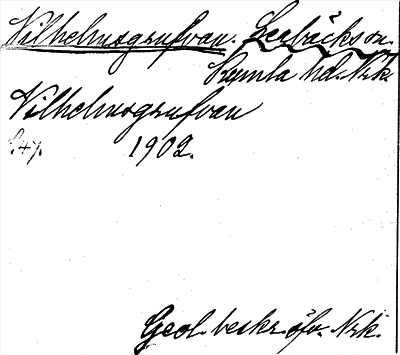 Vilhelmsgrufvan. Lerbäcks sn.
Kumla hd. Nrk.
Vilhelmsgrufvan
S. 47. 1902.
Geol. beskr. öfv. Nrk.